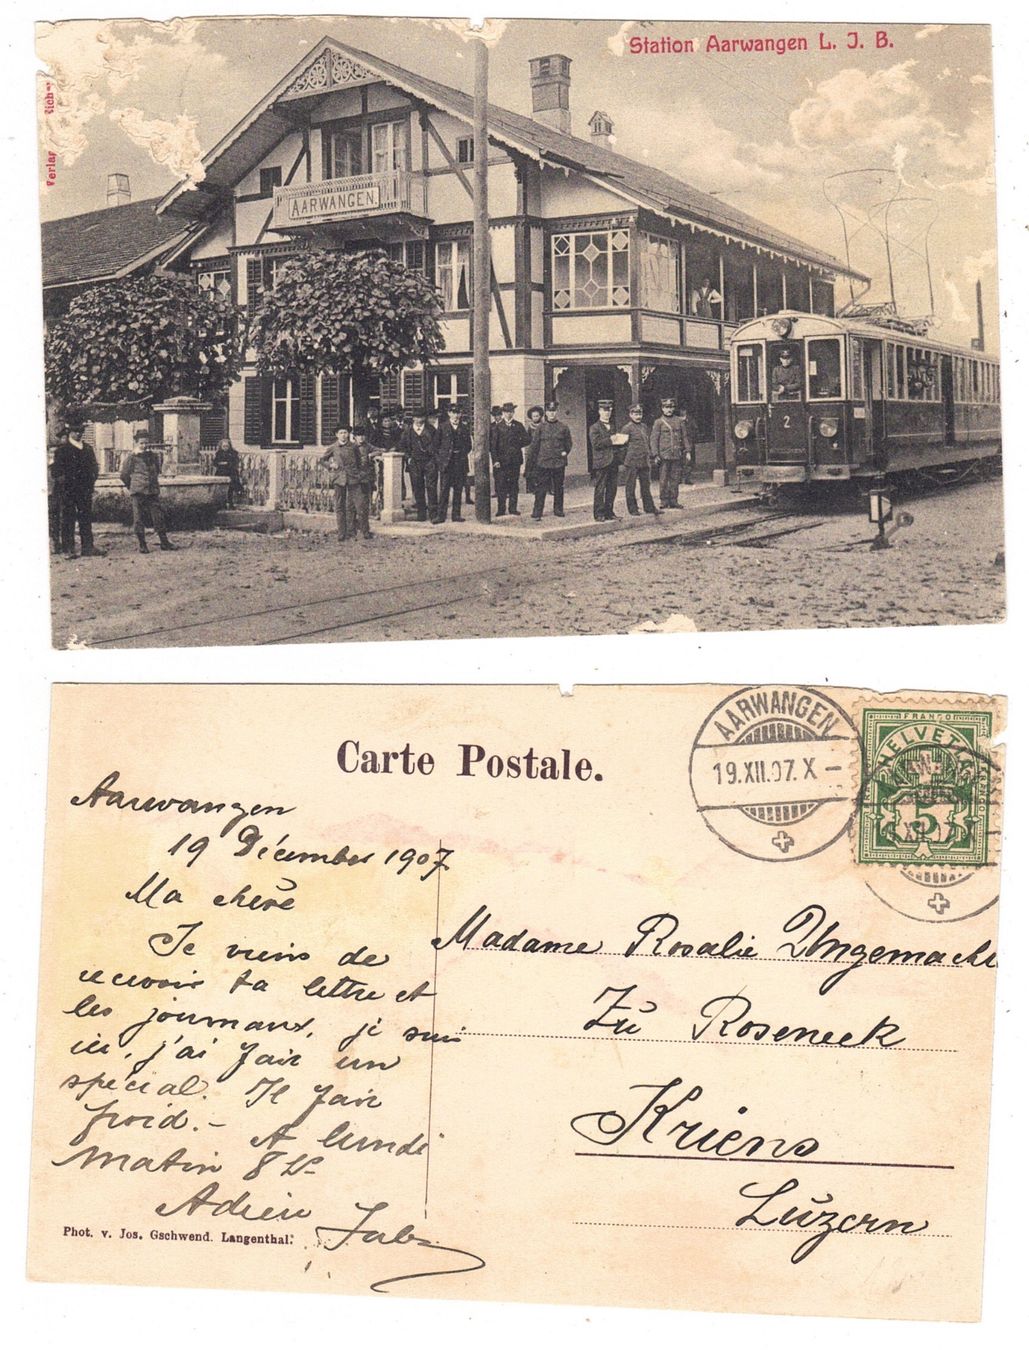 Station Aarwangen L. J. B.
Verlag
AARWANGEN.
2
Carte Postale.
AARWANGEN
19.XII.07.X –
FRANCO
HELVETIA
FRANCO
5
Aarwangen
19 Décembre 1907.
Ma chère
Je viens de
recevoir ta lettre et
les journaux, je suis
ici, j'ai fait un
spécial. Il fait
froid. –
A lundi
matin 8
Madame Rosalie
Zu Roseneck
Kriens
Luzern
Phot. v. Jos. Gschwend. Langenthal.